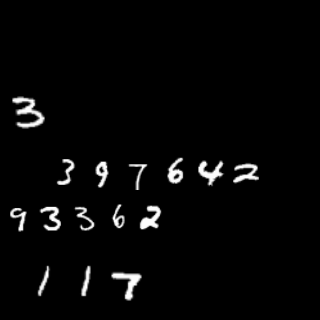 3
397642
93362
117